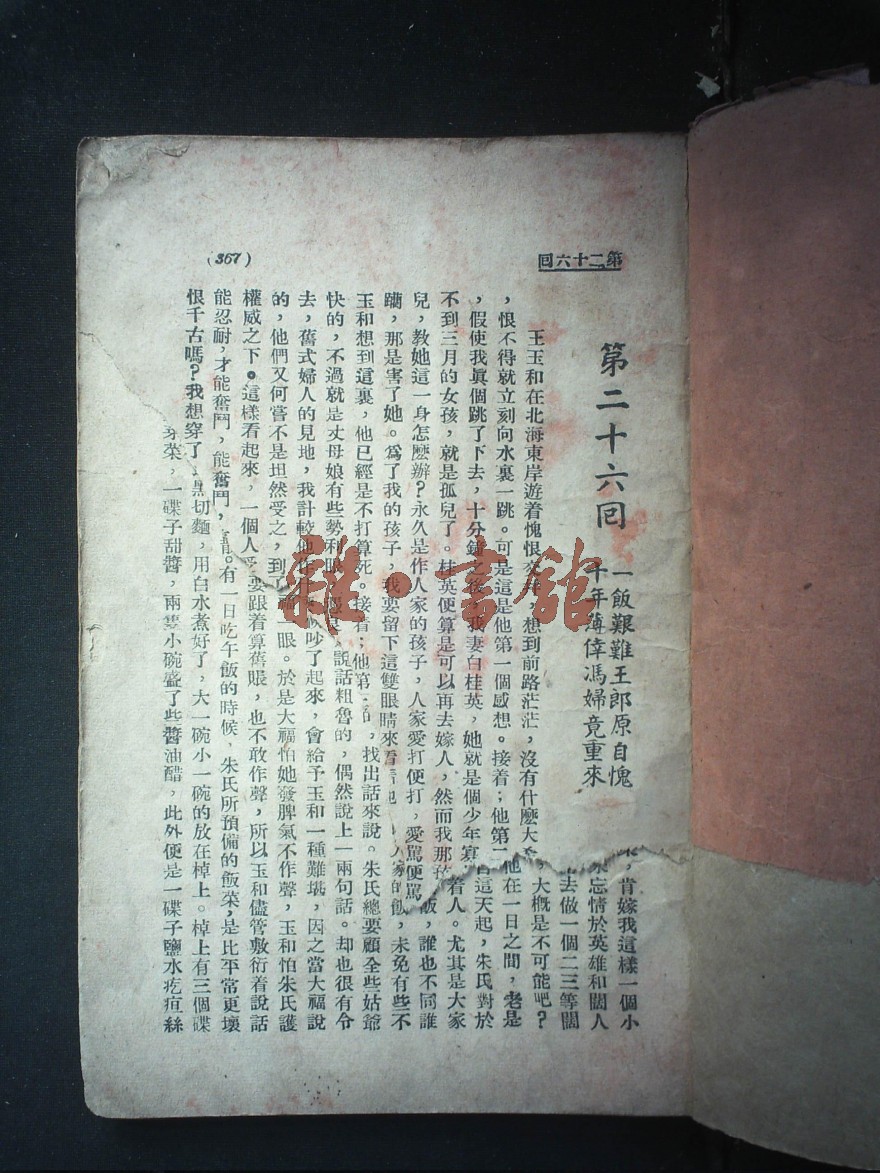 第二十六回
(367)
第二十六回
一飯艱難王郎原自愧
十年薄倖馮婦竟重來
王玉和在北海東岸遊着愧恨交
想到前路茫茫，沒有什麽大
，大概是不可能吧？
，恨不得就立刻向水裏一跳。可是這是他第一個感想。接着；他第
他在一日之間，老是
，假使我眞個跳了下去，十分鐘之後，我妻白桂英，她就是個少年寡
這天起，朱氏對於
不到三月的女孩，就是孤兒了。桂英便算是可以再去嫁人，然而我那孩
着人。尤其是大家
兒，教她這一身怎麽辦？永久是作人家的孩子，人家愛打便打，愛罵便罵
飯，誰也不同誰
躪，那是害了她。爲了我的孩子，我要留下這雙眼睛來看
人家的飯，未免有些不
玉和想到這裏，他已經是不打算死。接着；他第
的，找出話來說。朱氏總要顧全些姑爺
快的，不過就是丈母娘有些勢利眼
說話粗魯的，偶然說上一兩句話。却也很有令
去，舊式婦人的見地，我計較他
吵了起來，會給予玉和一種難堪，因之當大福說
的，他們又何嘗不是坦然受之，到
眼。於是大福怕她發脾氣不作聲，玉和怕朱氏護
權威之下。這樣看起來，一個人
要跟着算舊賬，也不敢作聲，所以玉和儘管敷衍着說話
能忍耐，才能奮鬥，能奮鬥，
。有一日吃午飯的時候，朱氏所預備的飯菜，是比平常更壞
恨千古嗎？我想穿了
黑切麵，用白水煮好了，大一碗小一碗的放在棹上。棹上有三個碟
菜，一碟子甜醬，兩隻小碗盛了些醬油醋，此外便是一碟子鹽水疙疸絲
，肯嫁我這樣一個小
忘情於英雄和闊人
去做一個二三等闊
雜·書館